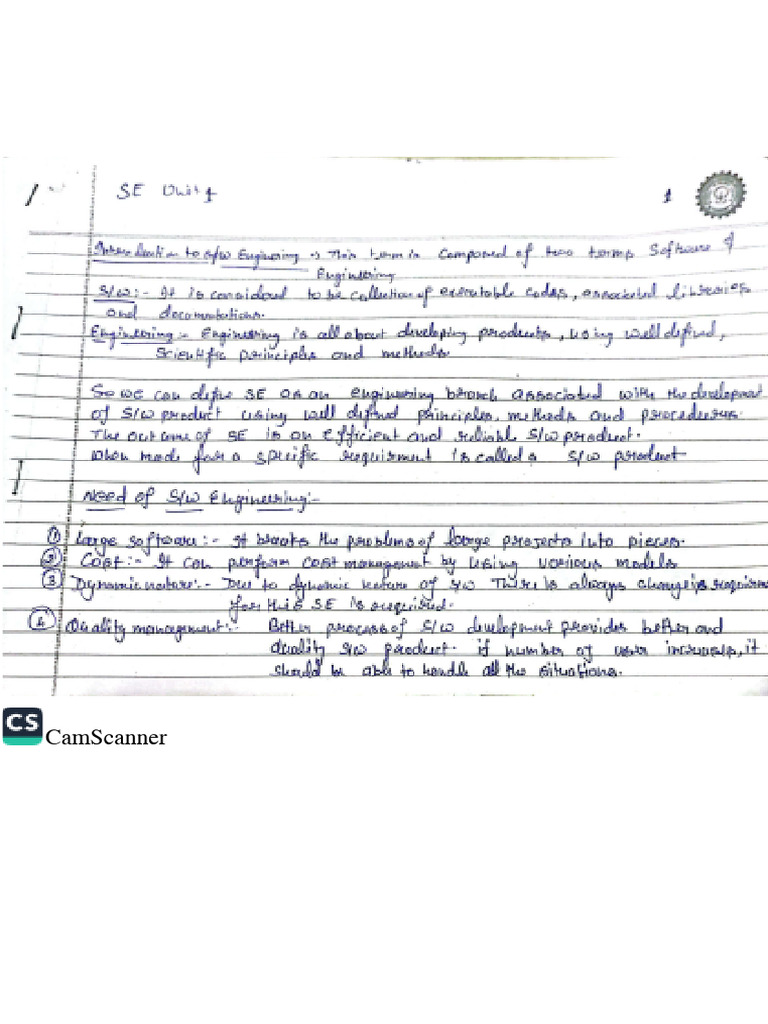 SE Unit 1
1
Introduction to S/w Enginering :- This term is Composed of two terms Software &
Enginering
S/w:- It is considered to be collection of executable codes, associated libraries
and documentations.
Engineering :- Engineering is all about developing products, using well defined,
Scientific principles and methods
So we can define SE as an engineering branch associated with the development
of S/w product using well defined principles, methods and procedures.
The outcome of SE is an efficient and reliable S/w product.
When made for a specific requirment is called a S/w product
Need of S/w Engineering:-
① Large software:- It breaks the problems of large projects into pieces.
② Cost:- It can perform cost management by using various models
③ Dynamic nature:- Due to dynamic nature of s/w There is always change in
for this SE is required.
④ Quality management:- Better process of S/w development provides better and
quality s/w product. if number of user increases, it
should be able to handle all the situations.
CS CamScanner